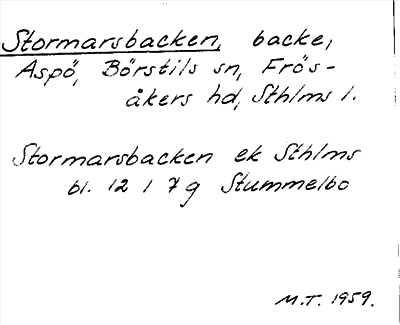 Stormarsbacken, backe,
Aspö, Börstils sn, Frös-
åkers hd, Sthlms l.
Stormarsbacken ek Sthlms
bl. 12 I 7g Stummelbo
M.T. 1959.